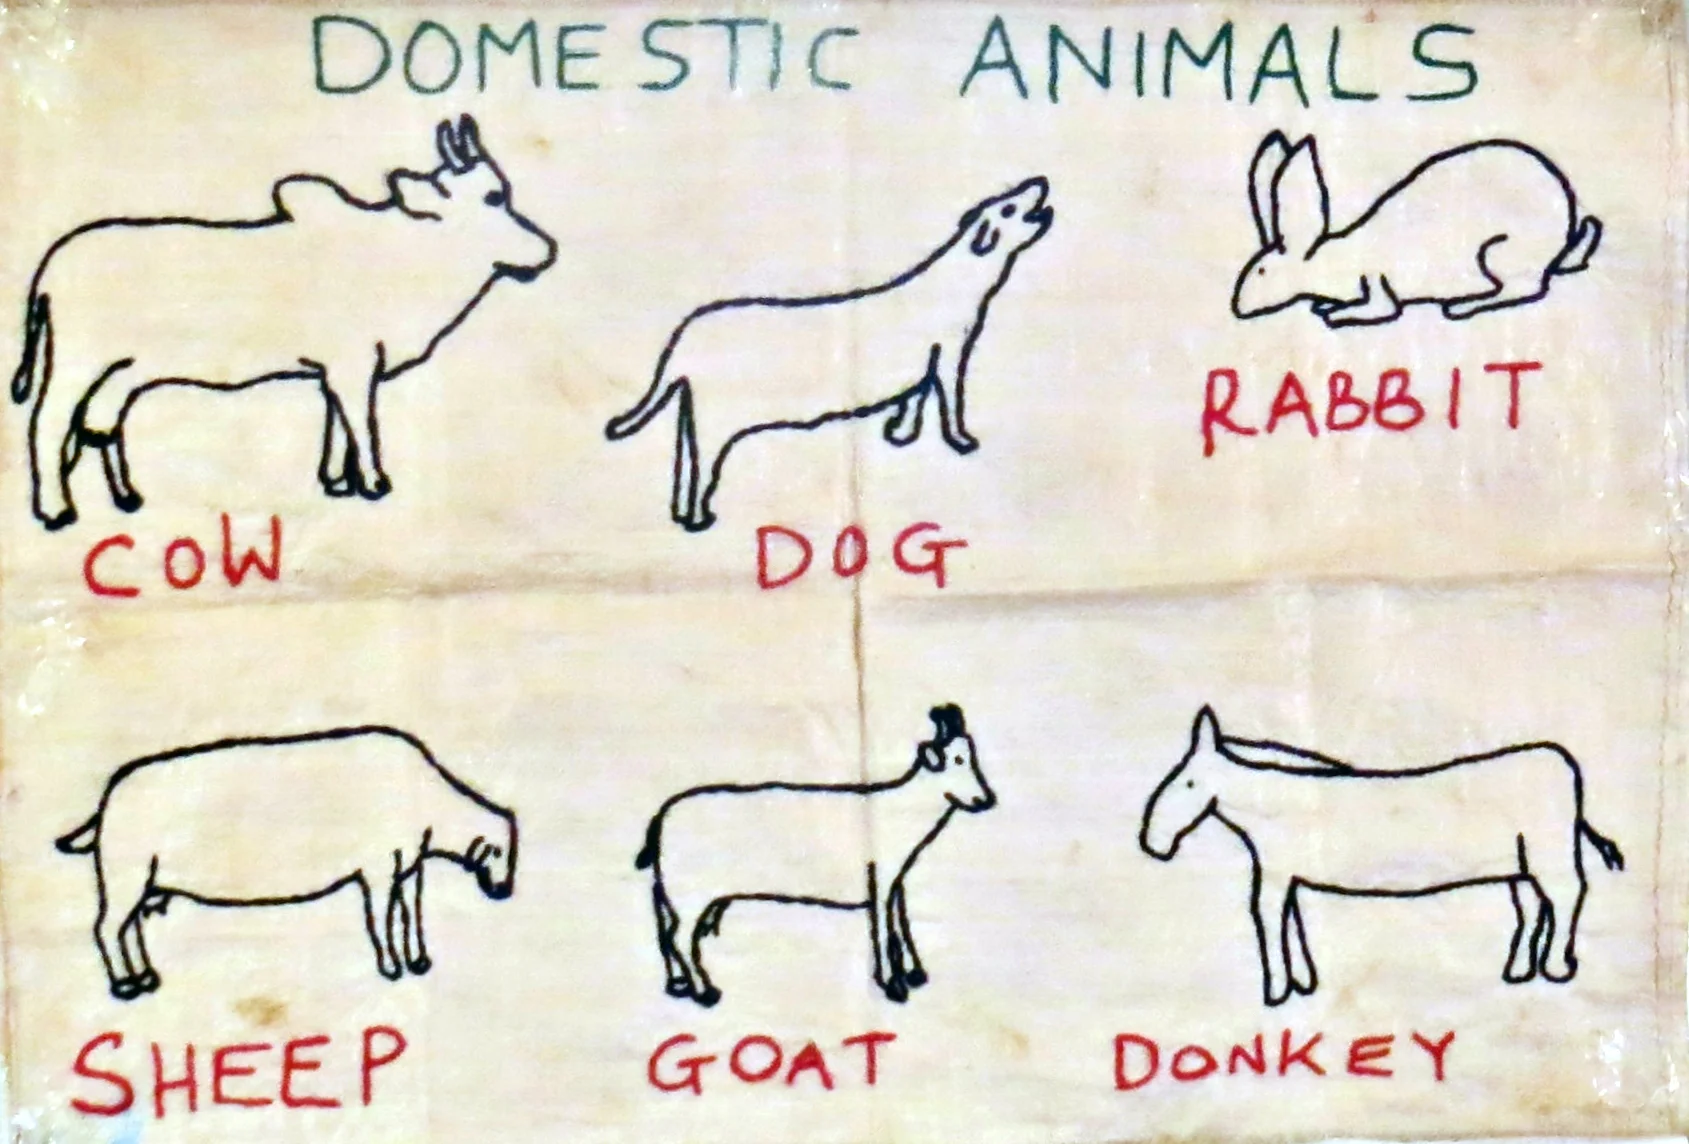 DOMESTIC ANIMALS
COW
DOG
RABBIT
SHEEP
GOAT
DONKEY